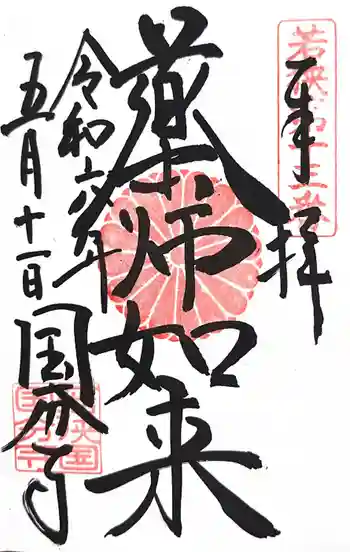 奉拝
若狭四十三番
薬師如来
令和六年
五月十一日
国分寺
若狭国
国分寺